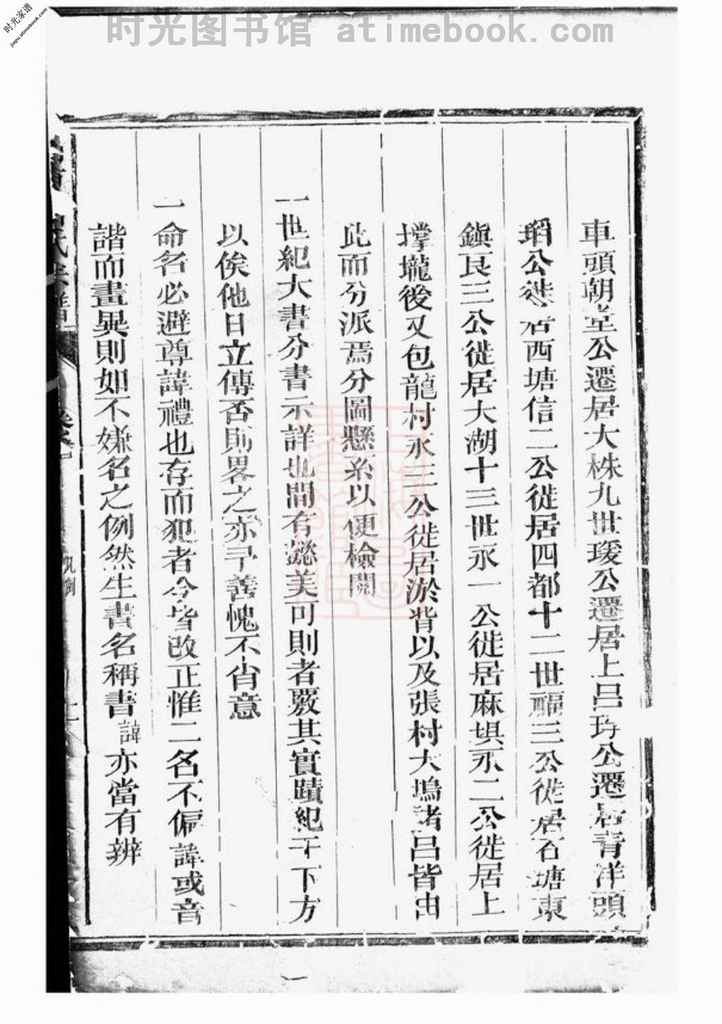 时光图书馆 atimebook.com
时光家谱
jiapu.atimebook.com
車頭朝堂公遷居大株九世瑗公遷居上呂 公遷居青洋頭
瑫公徙居西塘信二公徙居四都十二世福三公徙居石塘東
鎮艮三公徙居大湖十三世永一公徙居麻埧永二公徙居上
撑壠後又包龍村永三公徙居淤背以及張村大塢諸呂皆由
此而分派焉分圖懸系以便檢閱
一世紀大書分書示詳也間有懿美可則者覈其實蹟紀于下方
以俟他日立傳否則畧之亦寻善愧不肖意
一命名必避尊諱禮也存而犯者今皆改正惟二名不偏諱或音
諧而畫異則如不嫌名之例然生書名稱書諱亦當有辨
凡例
一